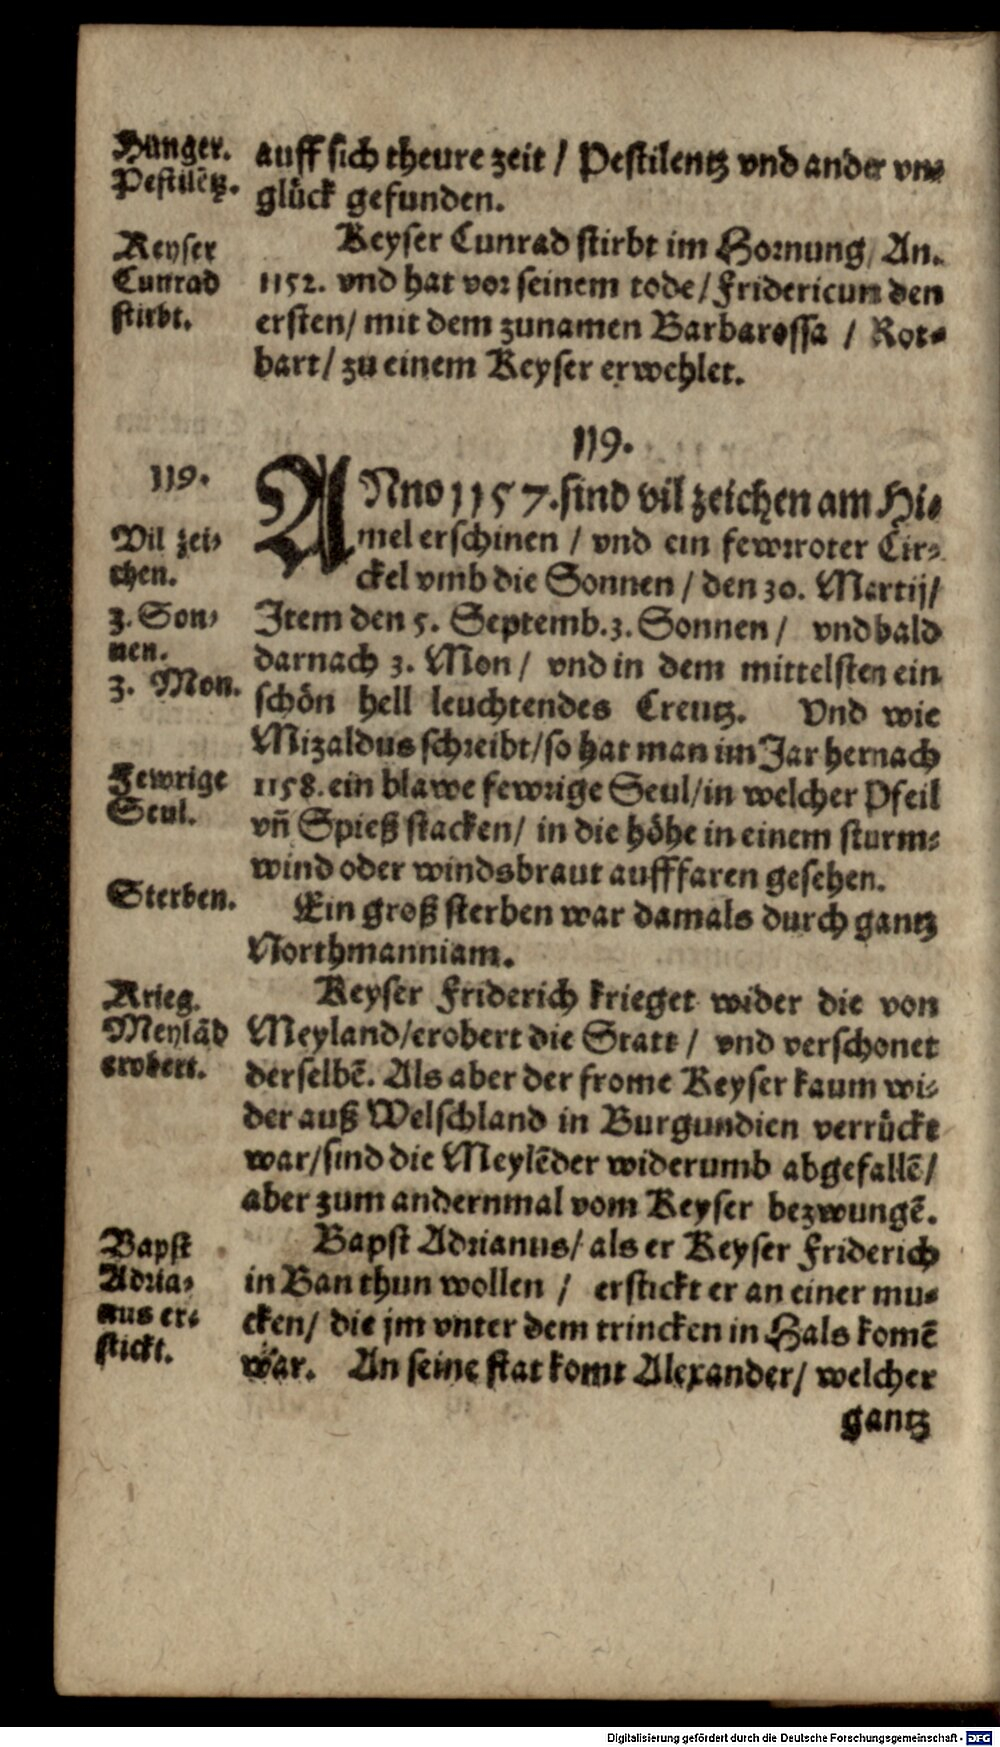 Hunger.
Pestilētz.
auff sich theure zeit / Pestilentz vnd ander vn-
glück gefunden.
Keyser
Cunrad
stirbt.
Keyser Cunrad stirbt im Hornung / An.
1152. vnd hat vor seinem tode / Fridericum den
ersten / mit dem zunamen Barbarossa / Rot-
bart / zu einem Keyser erwehlet.
119.
119.
ANno 1157. sind vil zeichen am Hi-
mel erschinen / vnd ein fewrroter Cir-
ckel vmb die Sonnen / den 30. Martij /
Item den 5. Septemb. 3. Sonnen / vnd bald
darnach 3. Mon / vnd in dem mittelsten ein
schön hell leuchtendes Creutz. Vnd wie
Mizaldus schreibt / so hat man im Jar hernach
1158. ein blawe fewrige Seul / in welcher Pfeil
vñ Spieß stacken / in die höhe in einem sturm-
wind oder windsbraut aufffaren gesehen.
Vil zei-
chen.
3. Son-
nen.
3. Mon.
Fewrige
Seul.
Sterben.
Ein groß sterben war damals durch gantz
Northmanniam.
Krieg.
Meylād
erobert.
Keyser Friderich krieget wider die von
Meyland / erobert die Statt / vnd verschonet
derselbē. Als aber der frome Keyser kaum wi-
der auß Welschland in Burgundien verrückt
war / sind die Meylēder widerumb abgefallē /
aber zum andernmal vom Keyser bezwungē.
Bapst
Adria-
nus er-
stickt.
Bapst Adrianus / als er Keyser Friderich
in Ban thun wollen / erstickt er an einer mu-
cken / die jm vnter dem trincken in Hals komē
war. An seine stat komt Alexander / welcher
gantz
Digitalisierung gefördert durch die Deutsche Forschungsgemeinschaft - DFG